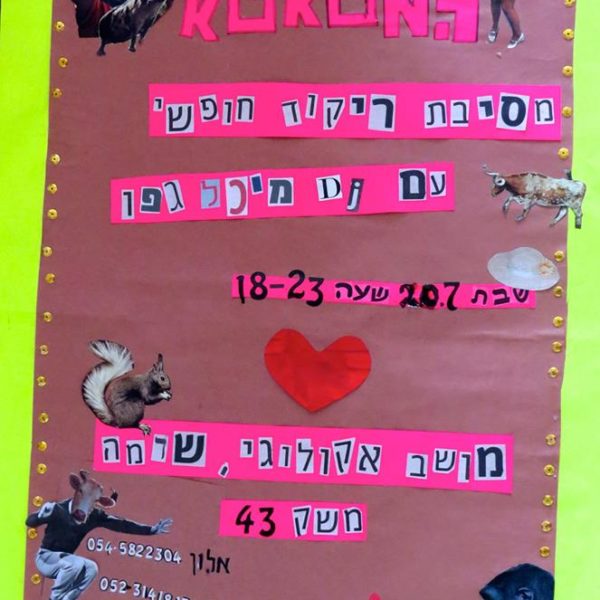 מסיבת ריקוד חופשי
עם Dj מיכל גפן
שבת 20.7 שעה 18-23
מושב אקולוגי, שדמה
משק 43
054-5822304 אלון